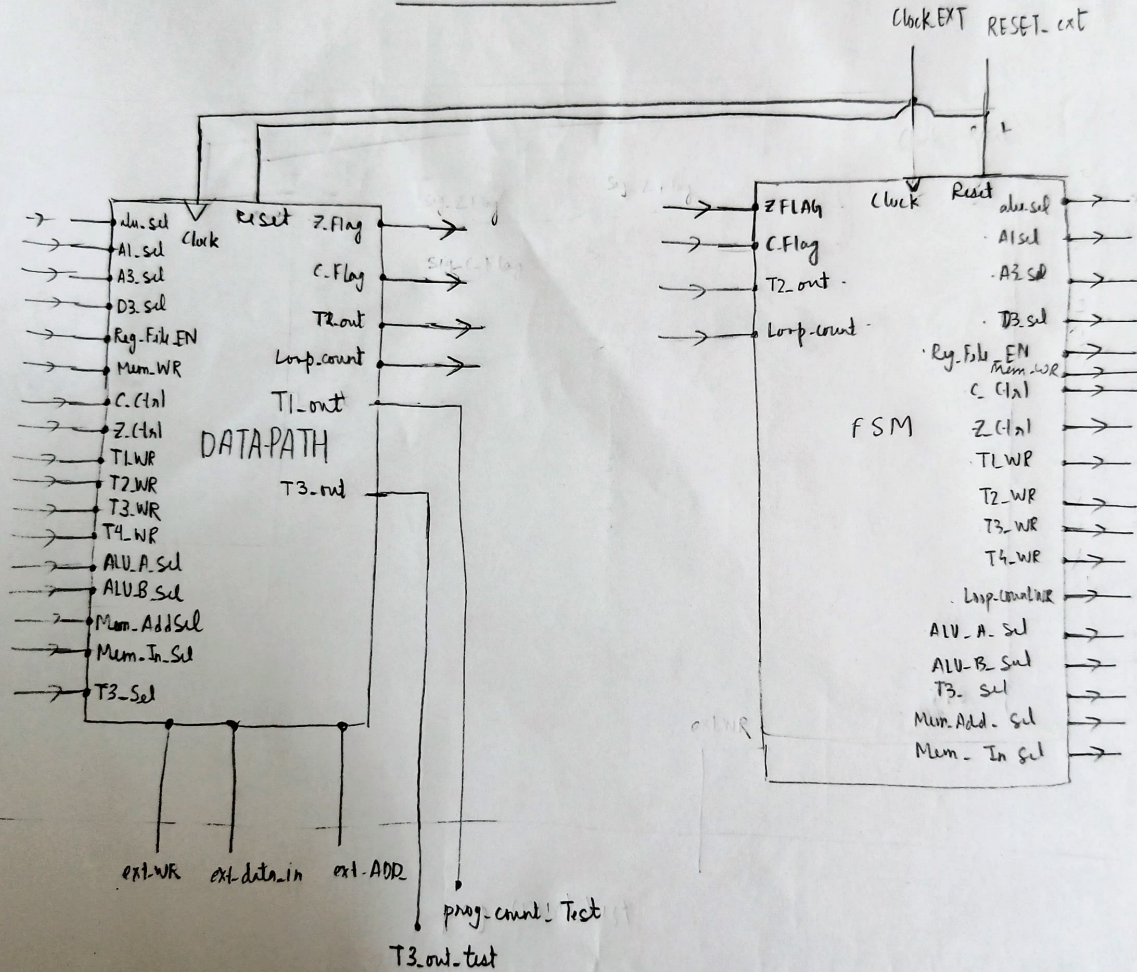 Clock_EXT
RESET_ext
Clock
Reset
alu_sel
A1_sel
A3_sel
D3_sel
Reg_File_EN
Mem_WR
C_Ctrl
Z_Ctrl
T1_WR
T2_WR
T3_WR
T4_WR
ALU_A_Sel
ALU_B_Sel
Mem_AddSel
Mem_In_Sel
T3_Sel
Z_Flag
C_Flag
T2_out
Loop_count
T1_out
DATA-PATH
T3_out
ext_WR
ext_data_in
ext_ADD
prog_count_Test
T3_out_test
Clock
Reset
Z FLAG
C_Flag
T2_out
Loop_count
FSM
alu_sel
A1sel
A3_sel
D3_sel
Reg_File_EN
Mem_WR
C_Ctrl
Z_Ctrl
T1_WR
T2_WR
T3_WR
T4_WR
Loop_countWR
ALU_A_Sel
ALU_B_Sel
T3_Sel
Mem_Add_Sel
Mem_In Sel